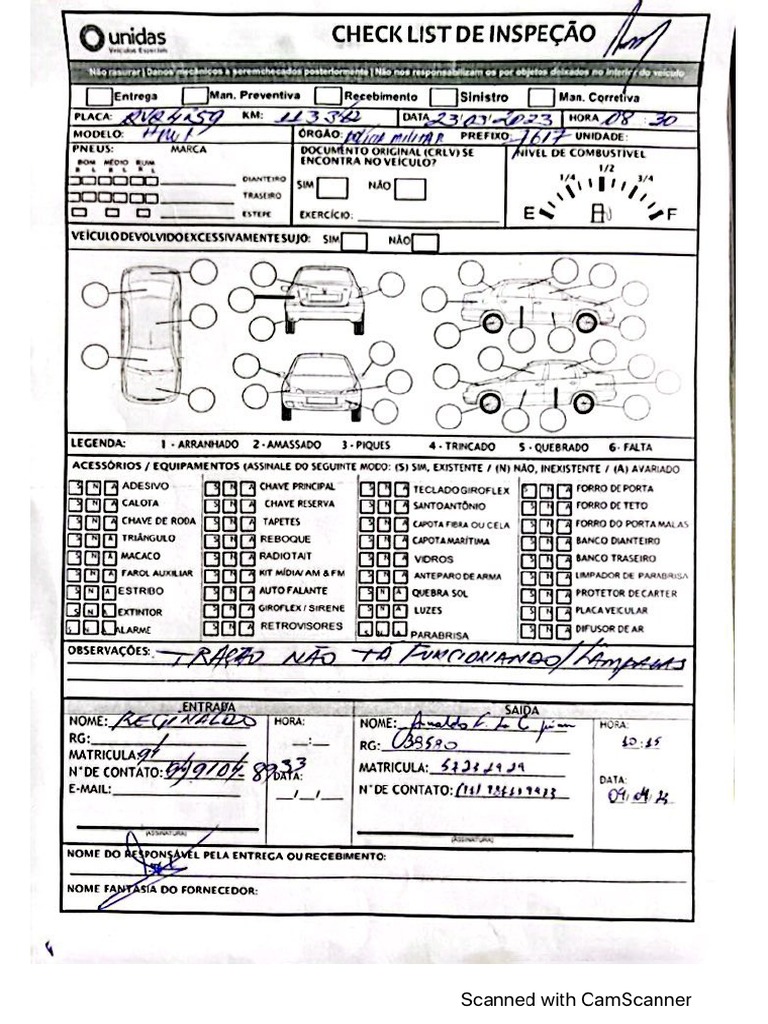 unidas
Veículos Especiais
CHECK LIST DE INSPEÇÃO
Não rasurar | Danos mecânicos a serem checados posteriormente | Não nos responsabilizam os por objetos deixados no interior do veículo
Entrega Man. Preventiva Recebimento Sinistro Man. Corretiva
PLACA: KM: 113342 DATA 23/03/2023 HORA 08:30
MODELO: ÓRGÃO: POLICIA MILITAR PREFIXO: UNIDADE:
PNEUS: MARCA
BOM MÉDIO RUIM
R L R L R L
DIANTEIRO
TRASEIRO
ESTEPE
DOCUMENTO ORIGINAL (CRLV) SE ENCONTRA NO VEÍCULO?
SIM NÃO
EXERCÍCIO:
NIVEL DE COMBUSTIVEL
1/4 1/2 3/4
E F
VEÍCULO DEVOLVIDO EXCESSIVAMENTE SUJO: SIM NÃO
LEGENDA: 1 - ARRANHADO 2 - AMASSADO 3 - PIQUES 4 - TRINCADO 5 - QUEBRADO 6 - FALTA
ACESSÓRIOS / EQUIPAMENTOS (ASSINALE DO SEGUINTE MODO: (S) SIM, EXISTENTE / (N) NÃO, INEXISTENTE / (A) AVARIADO
S N A ADESIVO S N A CHAVE PRINCIPAL S N A TECLADO GIROFLEX S N A FORRO DE PORTA
S N A CALOTA S N A CHAVE RESERVA S N A SANTOANTÔNIO S N A FORRO DE TETO
S N A CHAVE DE RODA S N A TAPETES S N A CAPOTA FIBRA OU CELA S N A FORRO DO PORTA MALAS
S N A TRIÂNGULO S N A REBOQUE S N A CAPOTA MARÍTIMA S N A BANCO DIANTEIRO
S N A MACACO S N A RADIO TAIT S N A VIDROS S N A BANCO TRASEIRO
S N A FAROL AUXILIAR S N A KIT MÍDIA/ AM & FM S N A ANTEPARO DE ARMA S N A LIMPADOR DE PARABRISA
S N A ESTRIBO S N A AUTO FALANTE S N A QUEBRA SOL S N A PROTETOR DE CARTER
S N A EXTINTOR S N A GIROFLEX / SIRENE S N A LUZES S N A PLACA VEICULAR
S N A ALARME S N A RETROVISORES S N A PARABRISA S N A DIFUSOR DE AR
OBSERVAÇÕES: TRAÇÃO NÃO TÁ FUNCIONANDO/LAMPADAS
ENTRADA
NOME: REGINALDO HORA:
RG:
MATRICULA:
N° DE CONTATO: DATA:
E-MAIL:
(ASSINATURA)
SAÍDA
NOME: Arnaldo HORA:
RG: 10:15
MATRICULA:
N° DE CONTATO: DATA:
(ASSINATURA)
NOME DO RESPONSÁVEL PELA ENTREGA OU RECEBIMENTO:
NOME FANTASIA DO FORNECEDOR:
Scanned with CamScanner